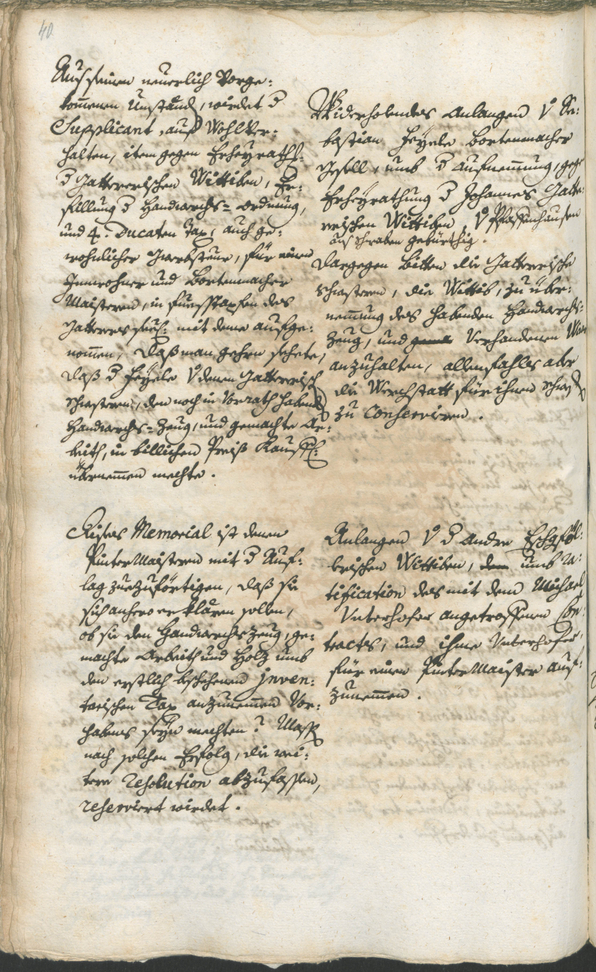 40.
Aus seinen neuerlich vorge-
kommenen Umständ, wirdet d
Supplicant, auf Wohlver-
halten, item gegen Erheyrath
d Jattererischen Wittiben, Er-
fillung d Handwerchs-Ordnung,
und 4. Ducaten Tax, auch ge-
wohnlicher
Innwohner und Bortenmacher
Maistern, in
Jatterer mit deme aufge-
nommen, daß man gehrn sehete,
daß d Heysele V denen Jatterrisch
den noch in Vorrath habend
Handwerchs-Zeug, und gemachte Ar-
beith, in billichen Preiß
übernemmen mechte.
Widerholendes Anlangen V Se-
bastian Heysele Bortenmacher
Gesell, umb d Aufnemmung, geg
Erheyrathung d Johannes Jatte-
rerischen Wittiben, V Pfaffenhausen
aus Schwaben gebürthig.
Dargegen bitten die Jattererische
die Wittib, zu über-
nemmung des habenden Handwerchs-
Zeug, und verhandenen
anzuhalten, allenfahls aber
die Werchstatt für ihnen
zu conserviren.
Dises Memorial ist denen
Pinter Maistern mit d Auf-
lag zuezuförtigen, daß sie
sich anhero erklären sollen,
ob sie den Handwerchszeug, ge-
machte Arbeith und Holz umb
den erstlich beschehenen inven-
tarischen Tax anzunemmen Vor-
habens seyn mechten? Mass
nach solchen Erfolg, die wei-
tere Resolution abzufassen,
reserviert wirdet.
Anlangen V d Andre
brischen Wittiben, umb Ra-
tification des mit dem Michael
Unterhofer angetroffenen Con-
tracts, und ihme Unterhofer
für einen Pinter Maister auf-
zunemmen.